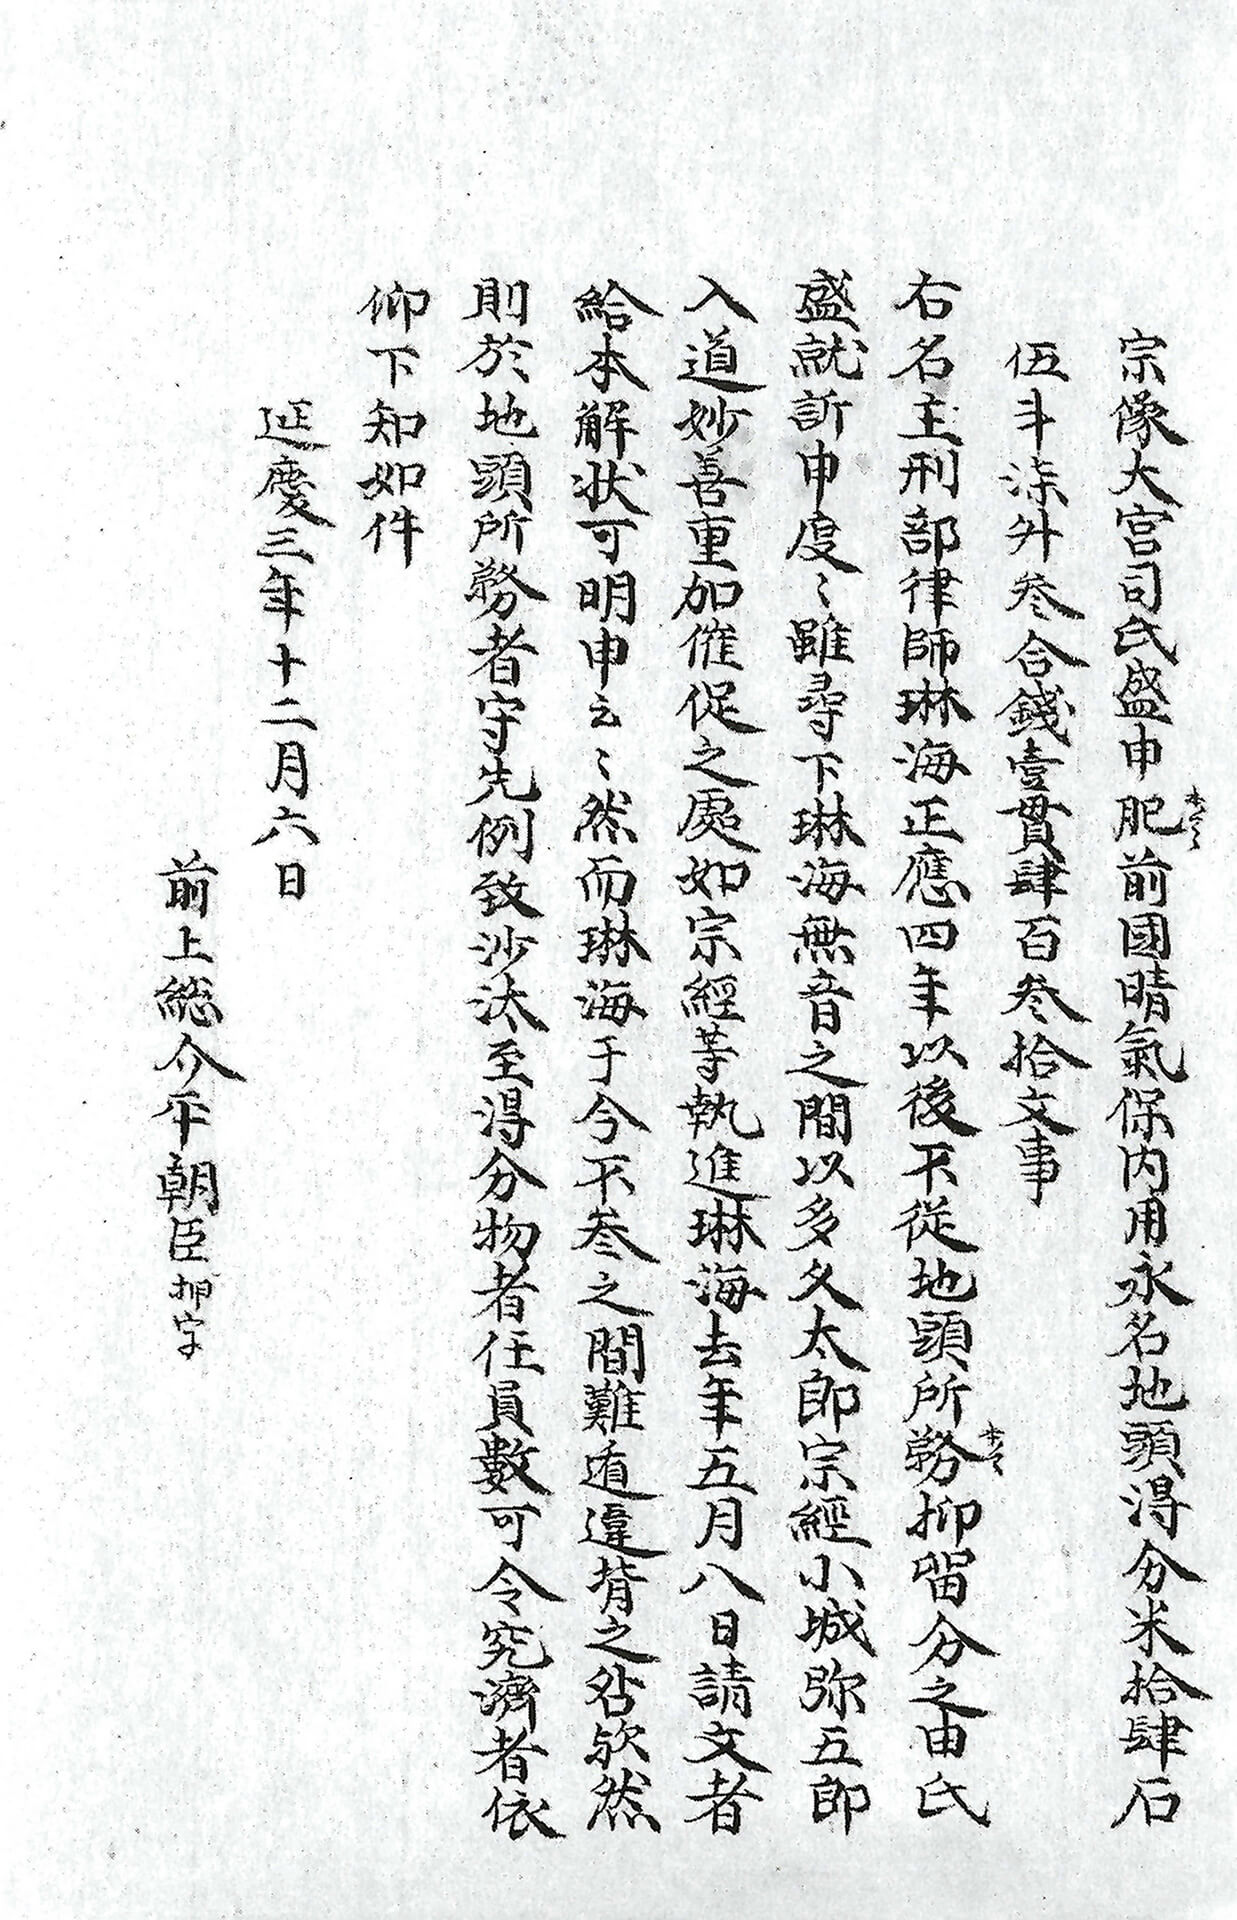 宗像大宮司氏盛申肥前國晴氣保内用永名地頭得分米拾肆石
伍斗柒升叁合錢壹貫肆百叁拾文事
右名主刑部律師琳海正應四年以後不從地頭所務抑留分之由氏
盛就訴申度〻雖尋下琳海無音之間以多久太郎宗經小城弥五郎
入道妙善重加催促之處如宗經等執進琳海去年五月八日請文者
給本解状可明申云〻然而琳海于今不叁之間難遁違背之咎欤然
則於地頭所務者守先例致沙汰至得分物者任員數可令究濟者依
仰下知如件
延慶三年十二月六日
前上総介平朝臣押字